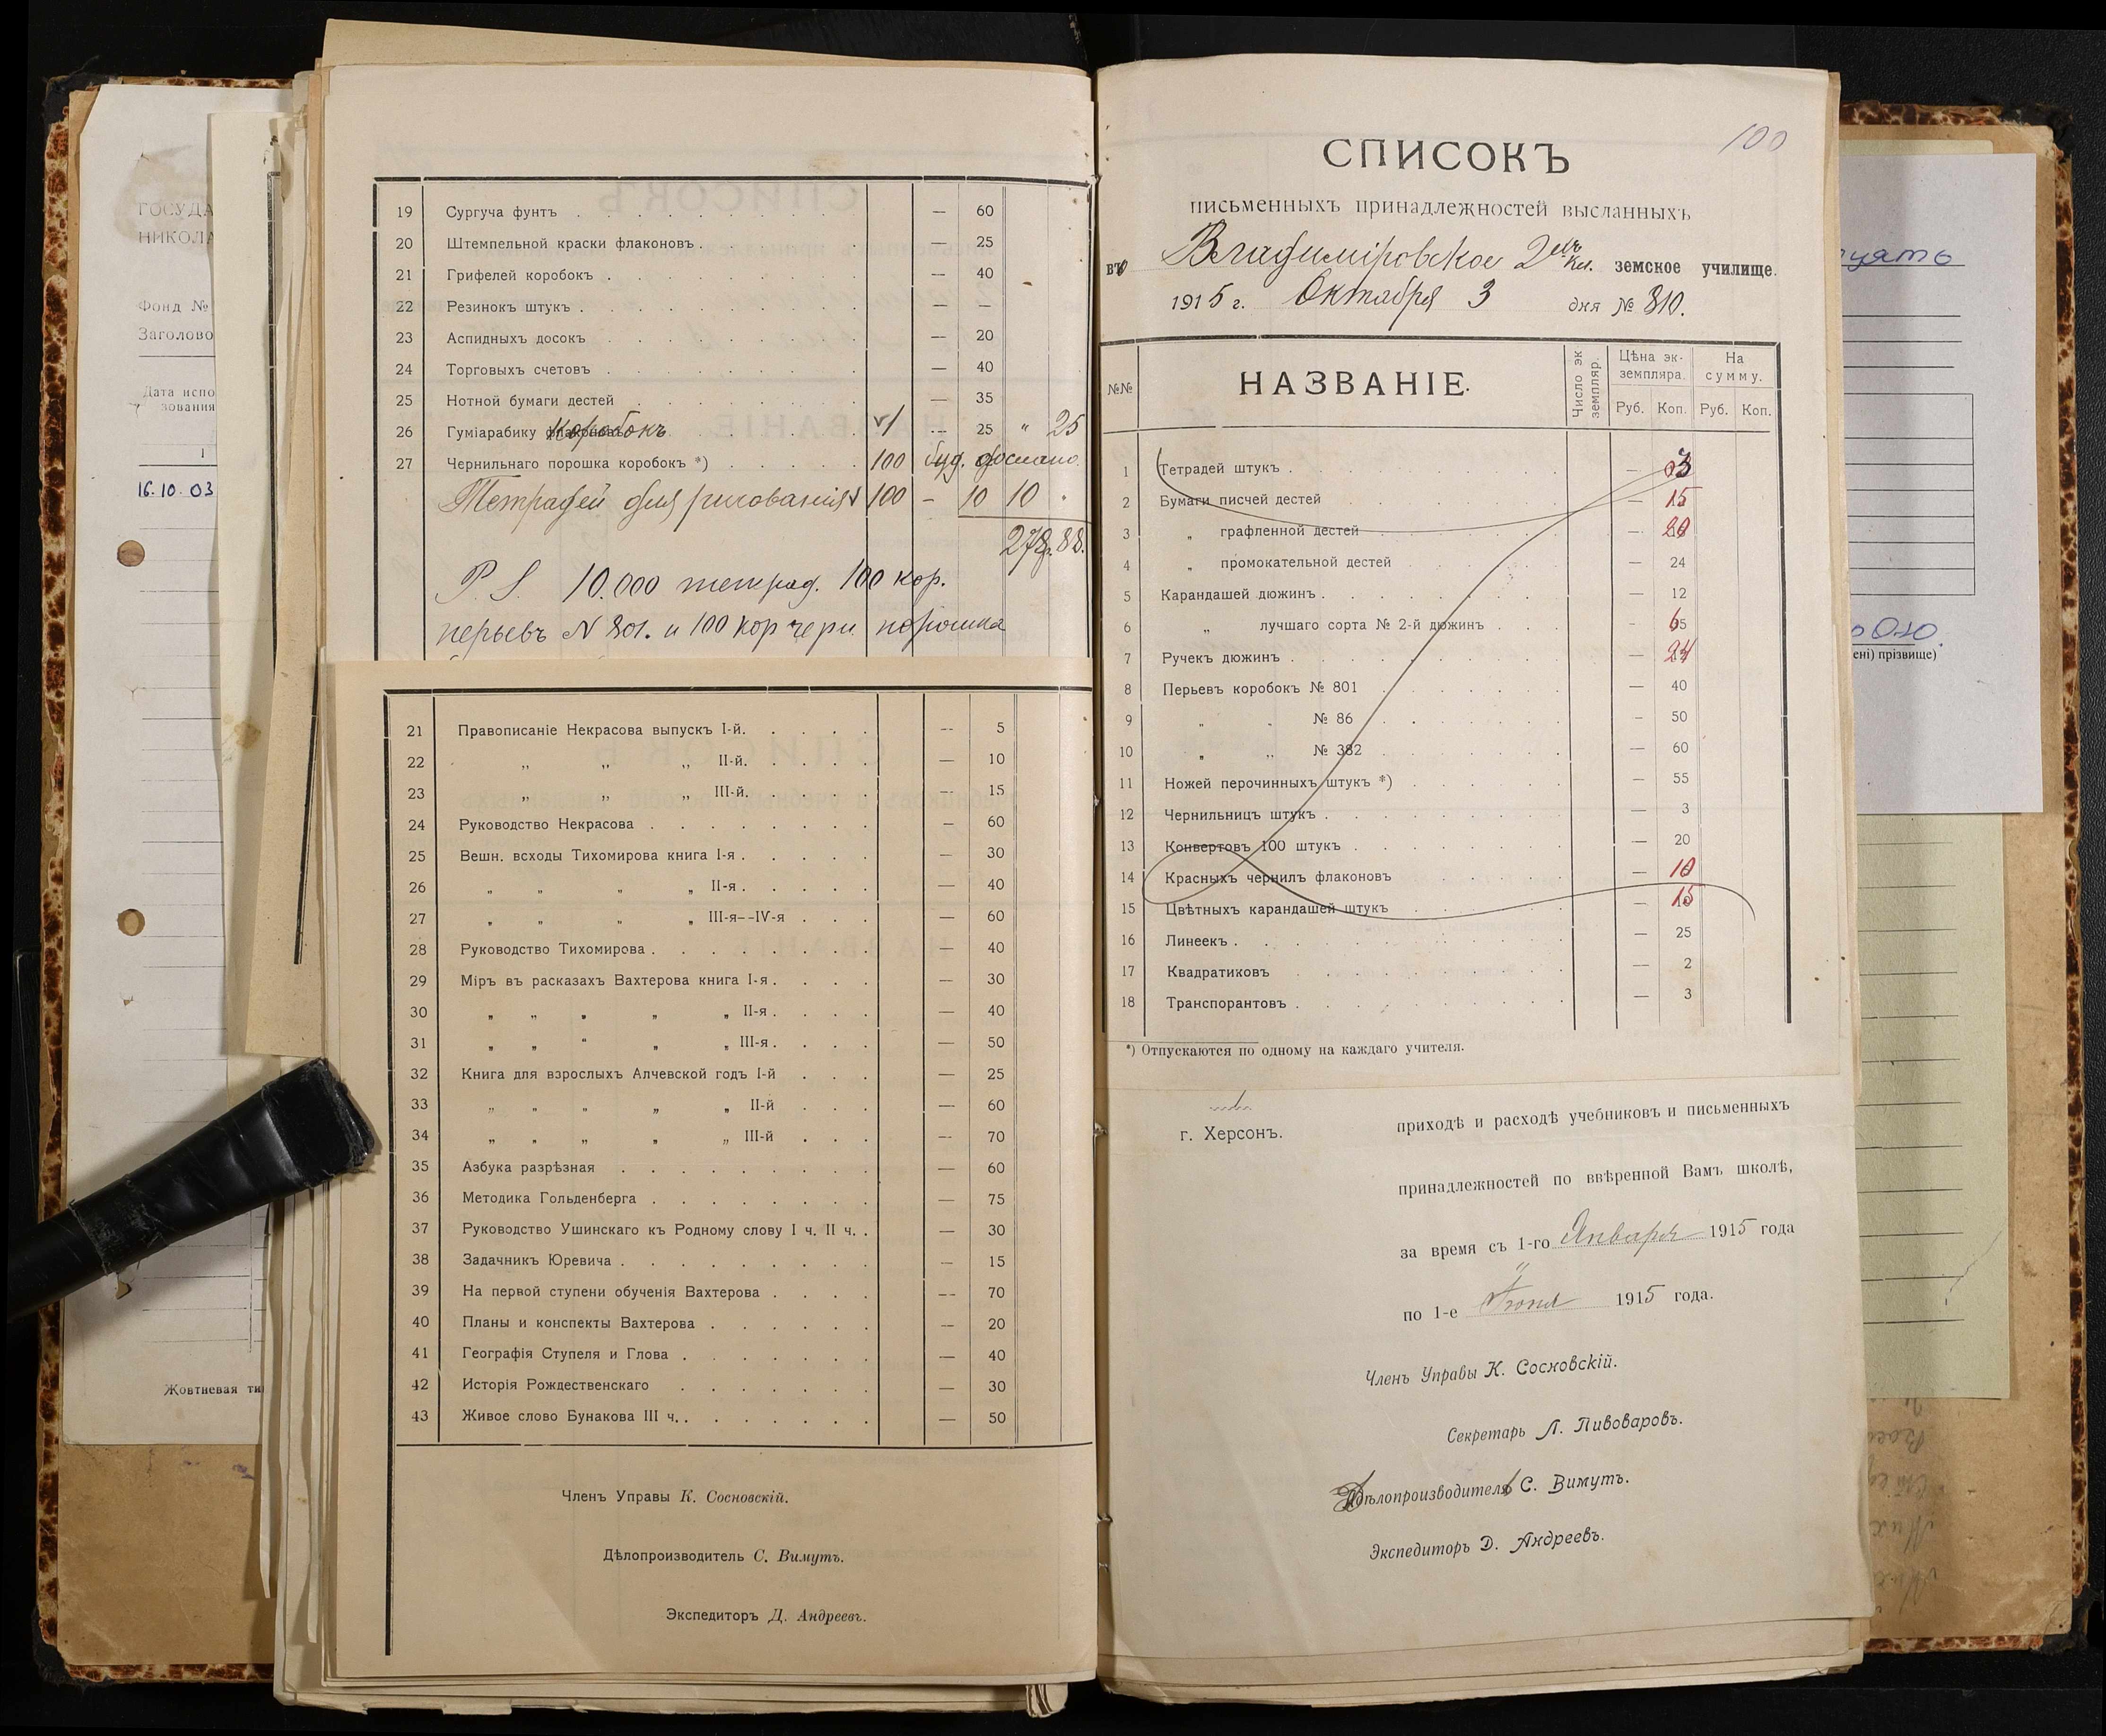 ГОСУДА
НИКОЛА
Фонд №
Заголово
Дата испо
зования
1
16.10.03
Жовтневая ти
19 Сургуча фунтъ — 60
20 Штемпельной краски флаконовъ — 25
21 Грифелей коробокъ — 40
22 Резинокъ штукъ — —
23 Аспидныхъ досокъ — 20
24 Торговыхъ счетовъ — 40
25 Нотной бумаги дестей — 35
26 Гуміарабику коробокъ 1 — 25 „ 25
27 Чернильнаго порошка коробокъ *) 100 буд. дослано.
Тетрадей для рисованія 100 — 10 10 .
278р. 88.
P. S. 10.000 тетрад. 100 кор.
перьевъ № 801. и 100 кор черн. порошка
21 Правописаніе Некрасова выпускъ I-й. — 5
22 „ „ „ II-й. — 10
23 „ „ „ III-й. — 15
24 Руководство Некрасова — 60
25 Вешн. всходы Тихомирова книга I-я — 30
26 „ „ „ „ II-я — 40
27 „ „ „ „ III-я—IV-я — 60
28 Руководство Тихомирова — 40
29 Міръ въ расказахъ Вахтерова книга I-я — 30
30 „ „ „ „ „ II-я — 40
31 „ „ „ „ „ III-я — 50
32 Книга для взрослыхъ Алчевской годъ I-й — 25
33 „ „ „ „ „ II-й — 60
34 „ „ „ „ „ III-й — 70
35 Азбука разрѣзная — 60
36 Методика Гольденберга — 75
37 Руководство Ушинскаго къ Родному слову I ч. II ч. — 30
38 Задачникъ Юревича — 15
39 На первой ступени обученія Вахтерова — 70
40 Планы и конспекты Вахтерова — 20
41 Географія Ступеля и Глова — 40
42 Исторія Рождественскаго — 30
43 Живое слово Бунакова III ч. — 50
Членъ Управы К. Сосновскій.
Дѣлопроизводитель С. Вимутъ.
Экспедиторъ Д. Андреевъ.
100
СПИСОКЪ
письменныхъ принадлежностей высланныхъ
въ Владиміровское 2хъ Кл. земское училище.
1915 г. Октября 3 дня № 310.
№№ НАЗВАНІЕ. Число экземпляр. Цѣна экземпляра. На сумму.
Руб. Коп. Руб. Коп.
1 Тетрадей штукъ — 3
2 Бумаги писчей дестей — 15
3 „ графленной дестей — 20
4 „ промокательной дестей — 24
5 Карандашей дюжинъ — 12
6 „ лучшаго сорта № 2-й дюжинъ — 65
7 Ручекъ дюжинъ — 24
8 Перьевъ коробокъ № 801 — 40
9 „ „ № 86 — 50
10 „ „ № 382 — 60
11 Ножей перочинныхъ штукъ *) — 55
12 Чернильницъ штукъ — 3
13 Конвертовъ 100 штукъ — 20
14 Красныхъ чернилъ флаконовъ — 10
15 Цвѣтныхъ карандашей штукъ — 15
16 Линеекъ — 25
17 Квадратиковъ — 2
18 Транспорантовъ — 3
*) Отпускаются по одному на каждаго учителя.
г. Херсонъ.
приходѣ и расходѣ учебниковъ и письменныхъ
принадлежностей по ввѣренной Вамъ школѣ,
за время съ 1-го Января 1915 года
по 1-е Іюня 1915 года.
Членъ Управы К. Сосновскій.
Секретарь Л. Пивоваровъ.
Дѣлопроизводитель С. Вимутъ.
Экспедиторъ Д. Андреевъ.
ені) прізвище)